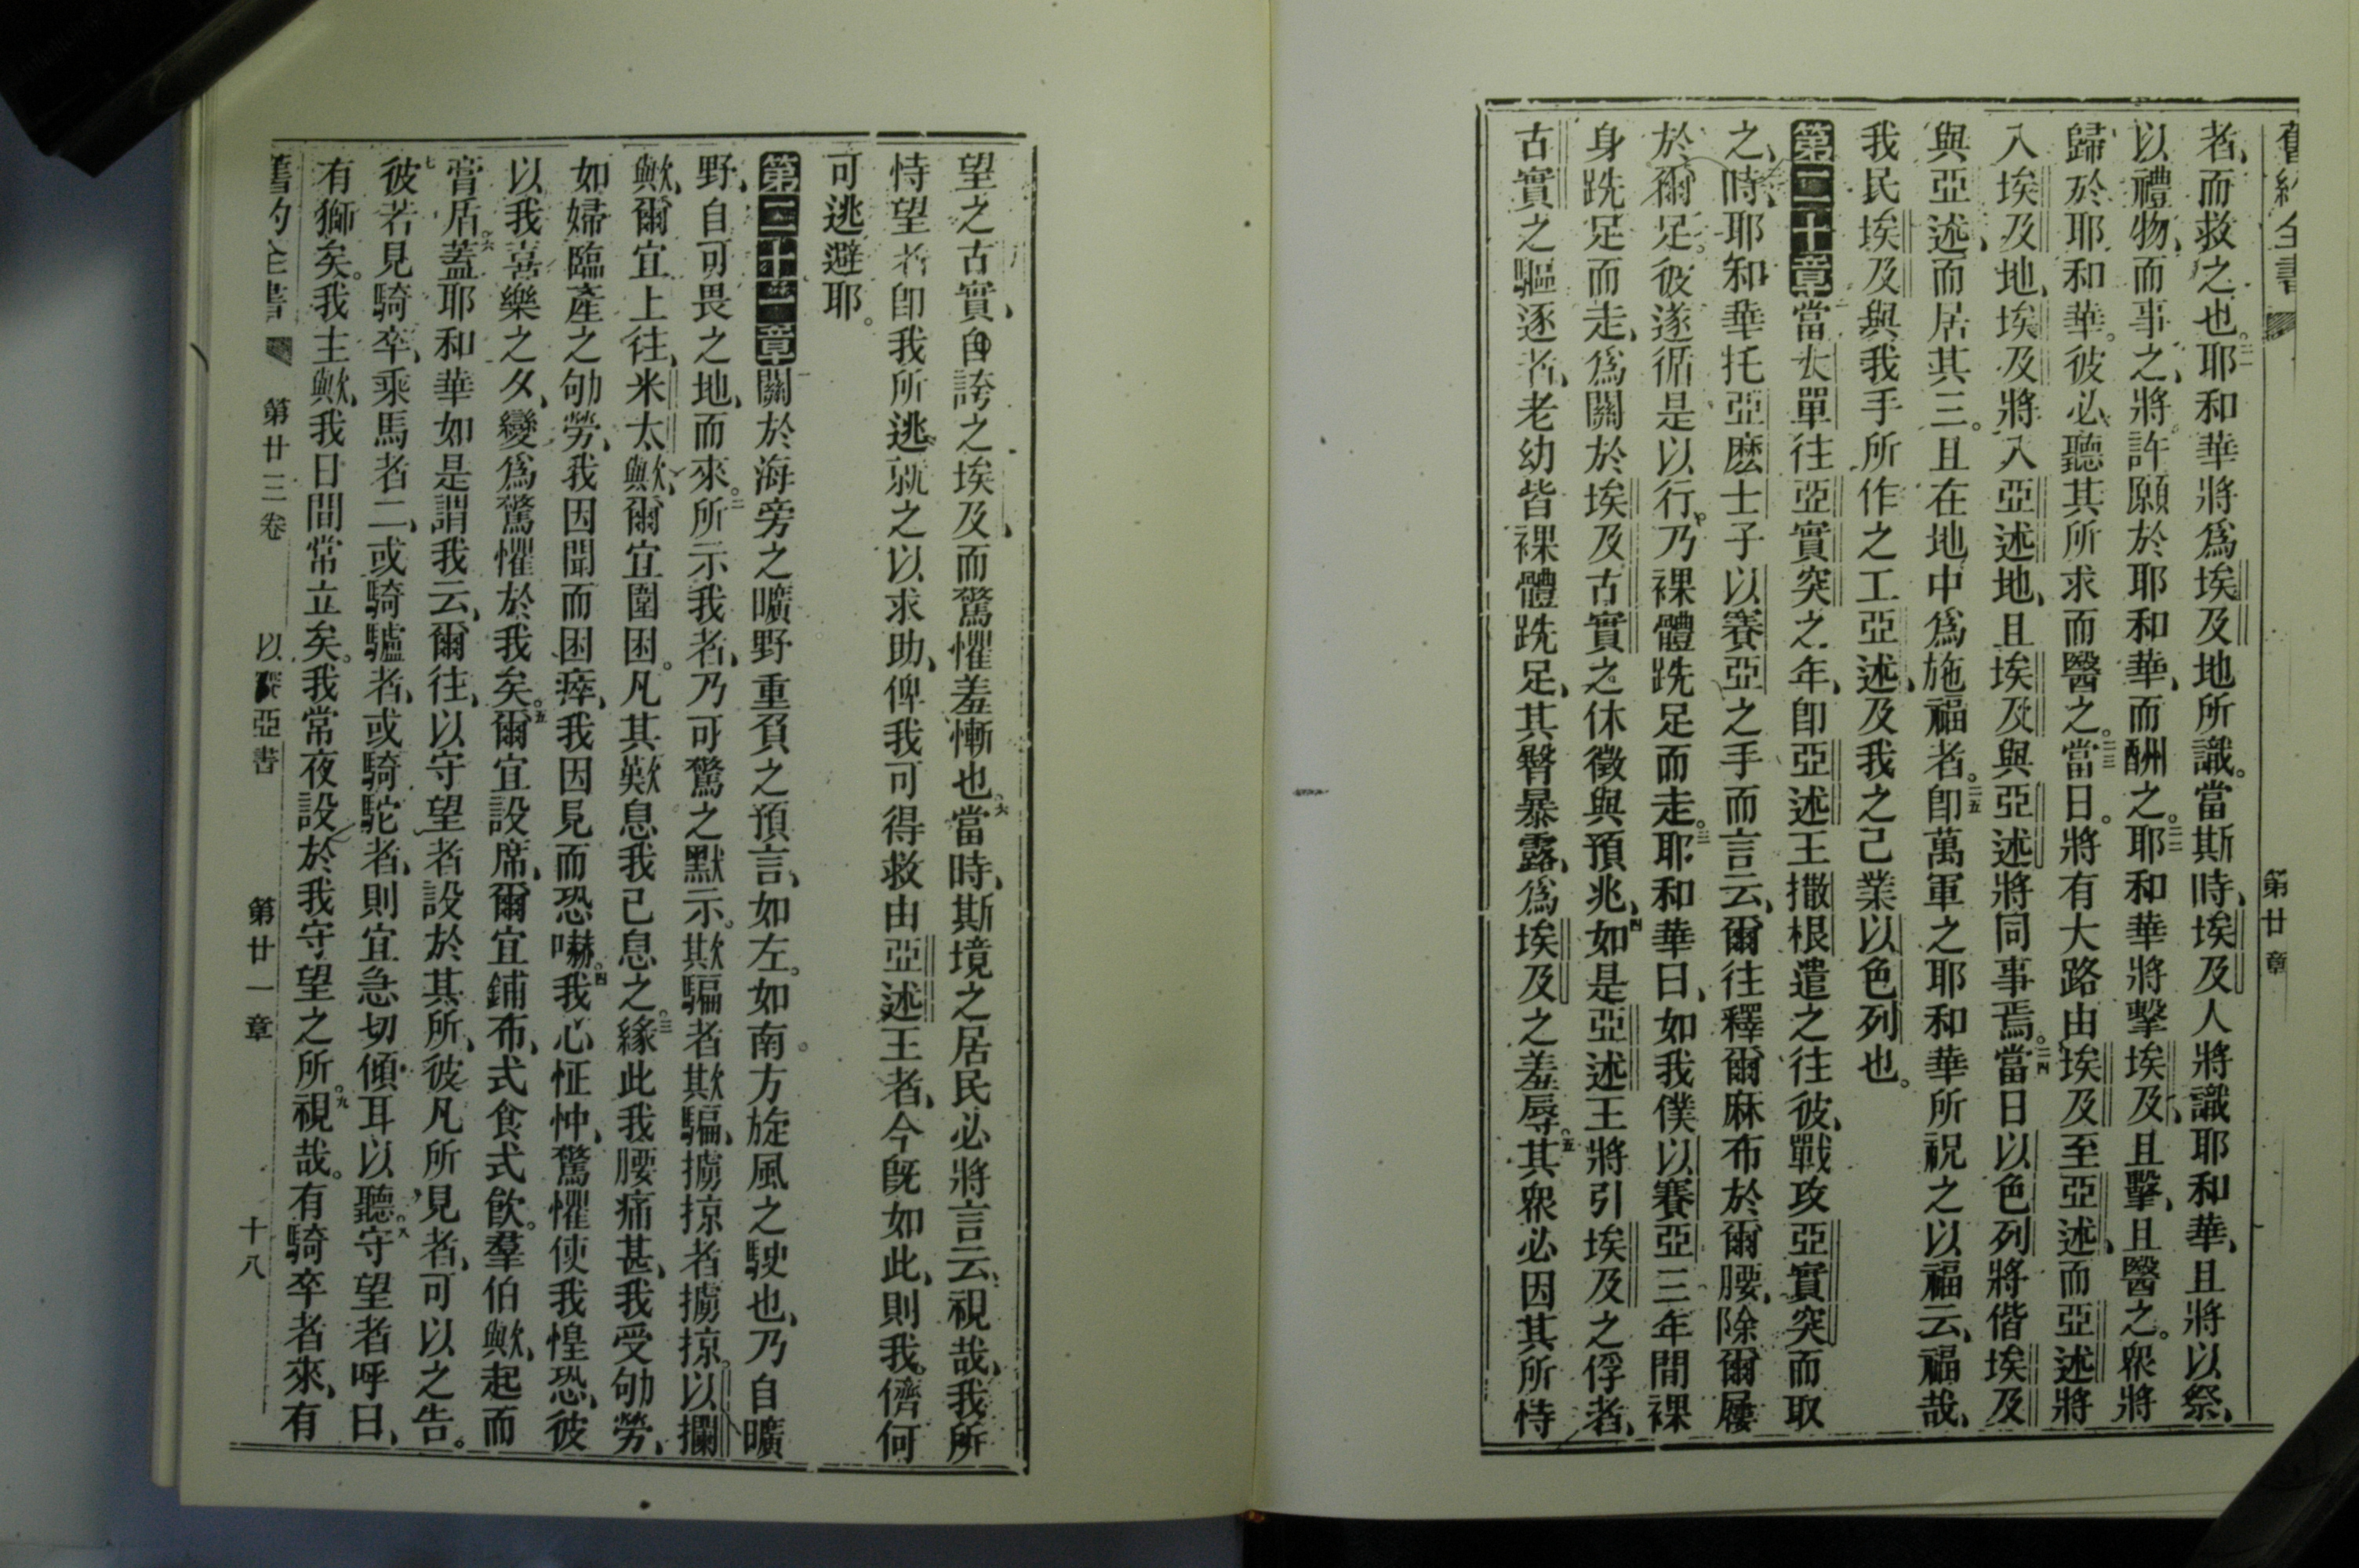 舊約全書 第廿章
者、而救之也。二一耶和華將爲埃及地所識。當斯時、埃及人將識耶和華、且將以祭、
以禮物、而事之、將許願於耶和華、而酬之。二二耶和華將擊埃及、且擊、且醫之。衆將
歸於耶和華。彼必聽其所求而醫之。二三當日。將有大路由埃及至亞述、而亞述將
入埃及地、埃及將入亞述地、且埃及與亞述將同事焉。二四當日以色列將偕埃及
與亞述、而居其三。且在地中爲施福者。二五卽萬軍之耶和華所祝之以福云、福哉、
我民埃及與我手所作之工亞述、及我之己業以色列也。
第二十章 當大單往亞實突之年、卽亞述王撒根遣之往彼、戰攻亞實突而取
之、二時、耶和華托亞麽士子以賽亞之手而言云、爾往釋爾麻布於爾腰、除爾屨
於爾足。彼遂循是以行。乃裸體跣足而走。三耶和華曰、如我僕以賽亞三年間裸
身跣足而走、爲關於埃及古實之休徵與預兆、四如是亞述王將引埃及之俘者、
古實之驅逐者、老幼皆裸體跣足、其臀暴露、爲埃及之羞辱。五其衆必因其所恃
望之古實、自誇之埃及、而驚懼羞慚也。六當時、斯境之居民必將言云、視哉、我所
恃望者卽我所逃就之以求助、俾我可得救由亞述王者、今旣如此、則我儕何
可逃避耶。
第二十一章 關於海旁之曠野重負之預言、如左。如南方旋風之駛也、乃自曠
野、自可畏之地、而來。二所示我者、乃可驚之默示。欺騙者欺騙、擄掠者擄掠。以攔
歟、爾宜上往、米太歟、爾宜圍困。凡其歎息我己息之。三緣此我腰痛甚、我受劬勞、
如婦臨產之劬勞、我因聞而困瘁、我因見而恐嚇。四我心怔忡、驚懼使我惶恐、彼
以我喜樂之夕、變爲驚懼於我矣。五爾宜設席、爾宜鋪布、式食式飲。羣伯歟、起而
膏盾。六蓋耶和華如是謂我云、爾往、以守望者設於其所、彼凡所見者、可以之告。
七彼若見騎卒、乘馬者二、或騎驢者、或騎駝者、則宜急切傾耳以聽。八守望者呼曰、
有獅矣。我主歟、我日間常立矣。我常夜設於我守望之所。九視哉。有騎卒者來、有
舊約全書 第廿三卷 以賽亞書 第廿一章 十八